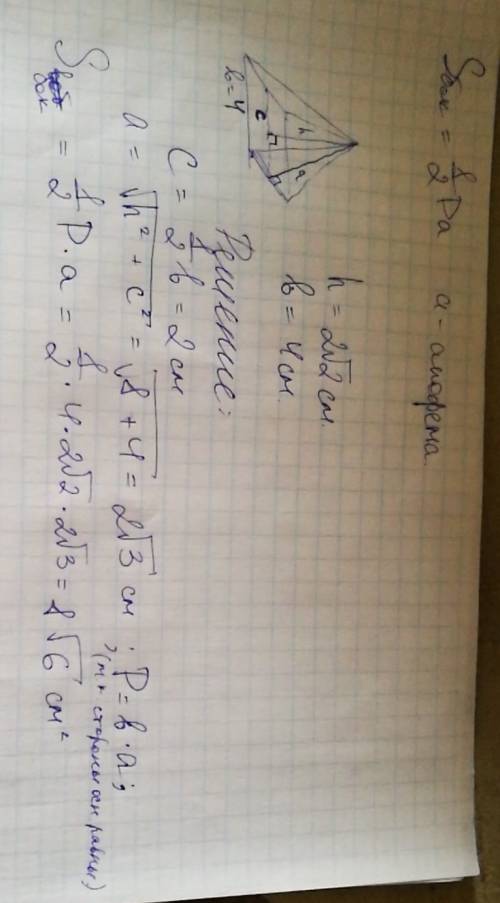 Sбок = 1/2 Pa   a - апофема
h = 2√2 см.
в = 4 см.
h
c
a
в=4
Решение:
C = 1/2 в = 2 см
a = √h² + c² = √8 + 4 = 2√3 см ; P = в · a ;
(т к стороны осн равны)
Sбок = 1/2 P · a = 1/2 · 4 · 2√2 · 2√3 = 8√6 см²